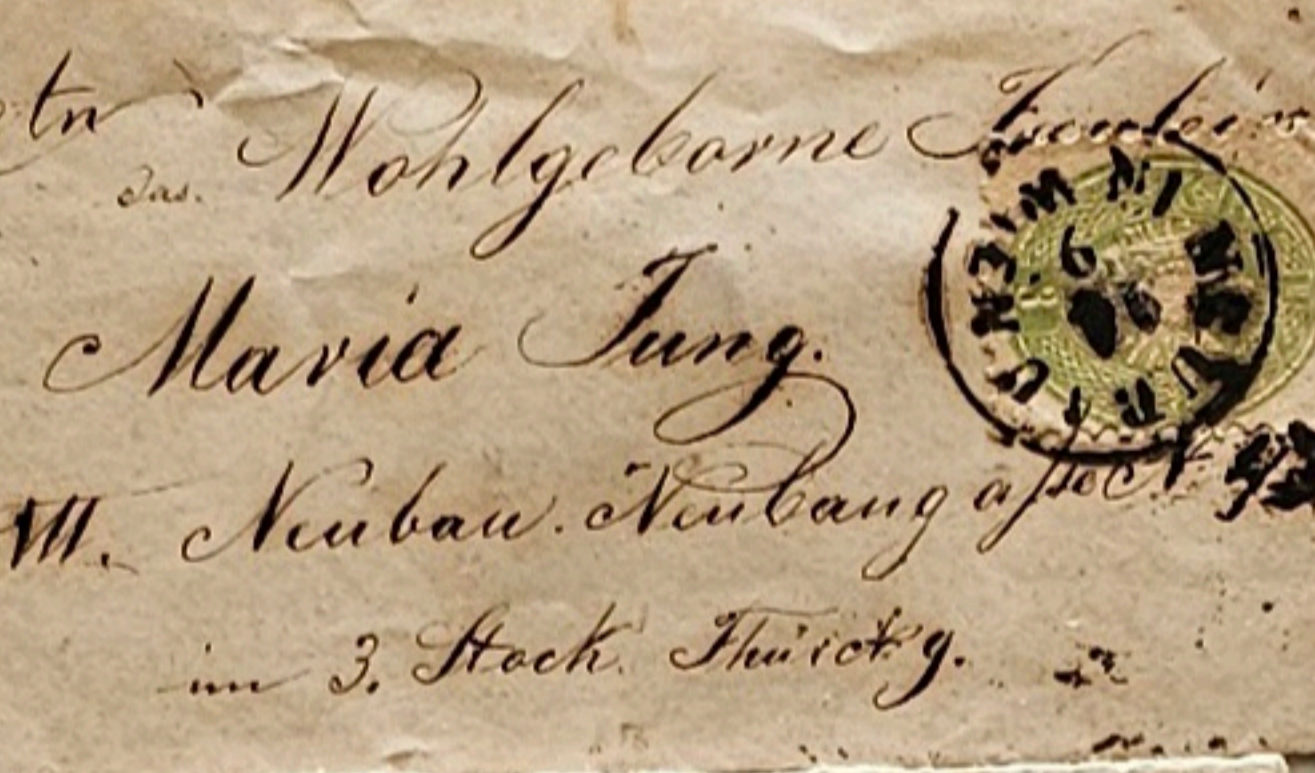 das. Wohlgeborne Fraulein
Maria Jung.
VII. Neubau. Neubaugasse N
im 3. Stock. Thür
NEUTUR IN WIEN